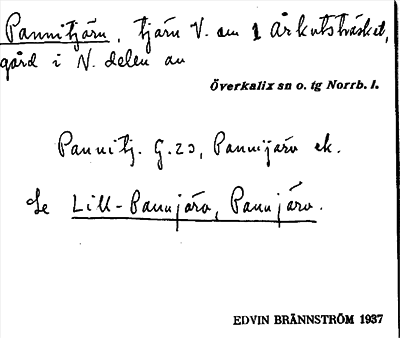 Pannitjärn, tjärn V. om 1 Arkutsträsket,
gård i N. delen av
Överkalix sn o. tg Norrb. l.
Pannitj. G.23, Pannijärv ek.
Se Lill-Pannjärv, Pannjärv.
EDVIN BRÄNNSTRÖM 1937